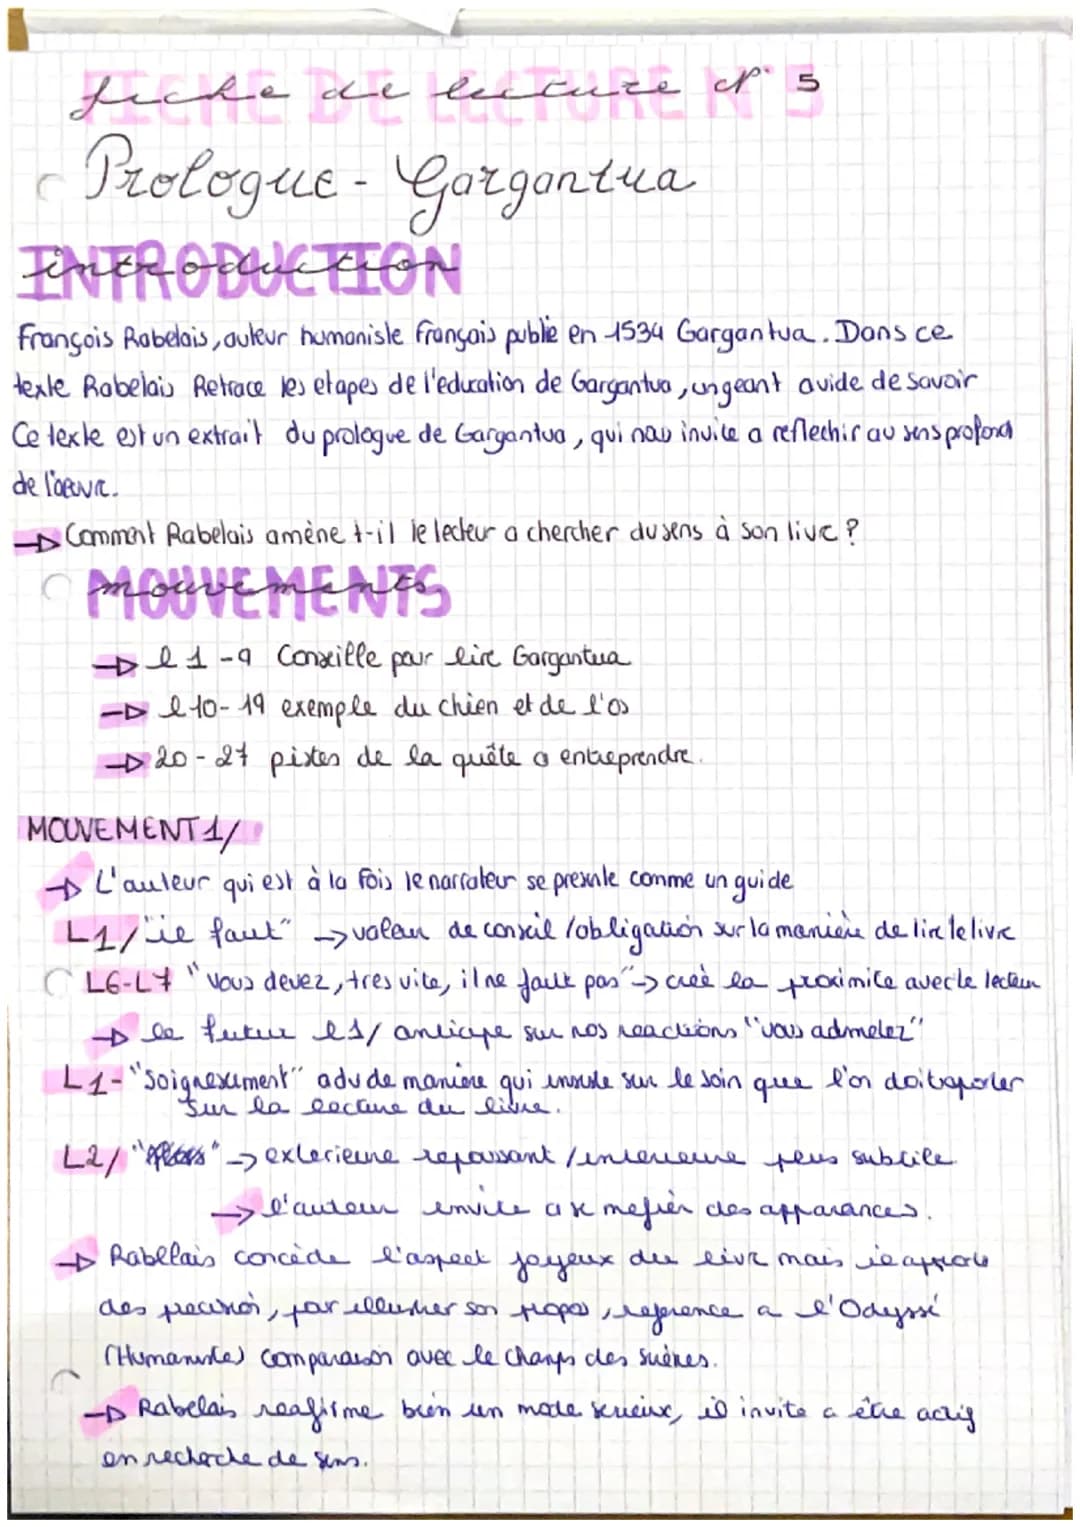 fiche de lecture N°5
Prologue - Gargantua
INTRODUCTION
introduction
François Rabelais, auteur humaniste français publie en 1534 Gargantua. Dans ce
texte Rabelais Retrace les etapes de l'education de Gargantua, un geant avide de savoir
Ce texte est un extrait du prologue de Gargantua, qui nous invite a reflechir au sens profond
de l'oeuvre.
→ Comment Rabelais amène t-il le lecteur a chercher du sens à son livre ?
MOUVEMENTS
mouvements
→ l 1 - 9 Conseille pour lire Gargantua
→ l 10 - 19 exemple du chien et de l'os
→ 20 - 27 pistes de la quête a entreprendre.
MOUVEMENT 1/
→ L'auteur qui est à la fois le narrateur se presente comme un guide
L1/ "il faut" → valeur de conseil / obligation sur la manière de lire le livre
L6-L7 "Vous devez, tres vite, il ne fault pas" → creé la proximite avec le lecteur
→ le futur l1/ anticipe sur nos reactions "vous admetez"
L1 - "Soigneusement" adv de maniere qui insiste sur le soin que l'on doit aporter
sur la lecture du livre.
L2/ → exterieure repoussant / interieure plus subtile
→ l'auteur invite a se mefier des apparances.
→ Rabllais concède l'aspect joyeux du livre mais il apporte
des precision, par illustrer son propos, reference a l'Odyssé
(Humaniste) comparaison avec le champs des sirènes.
→ Rabelais reafirme bien un mode serieux, il invite a être actif
en recherche de sens.